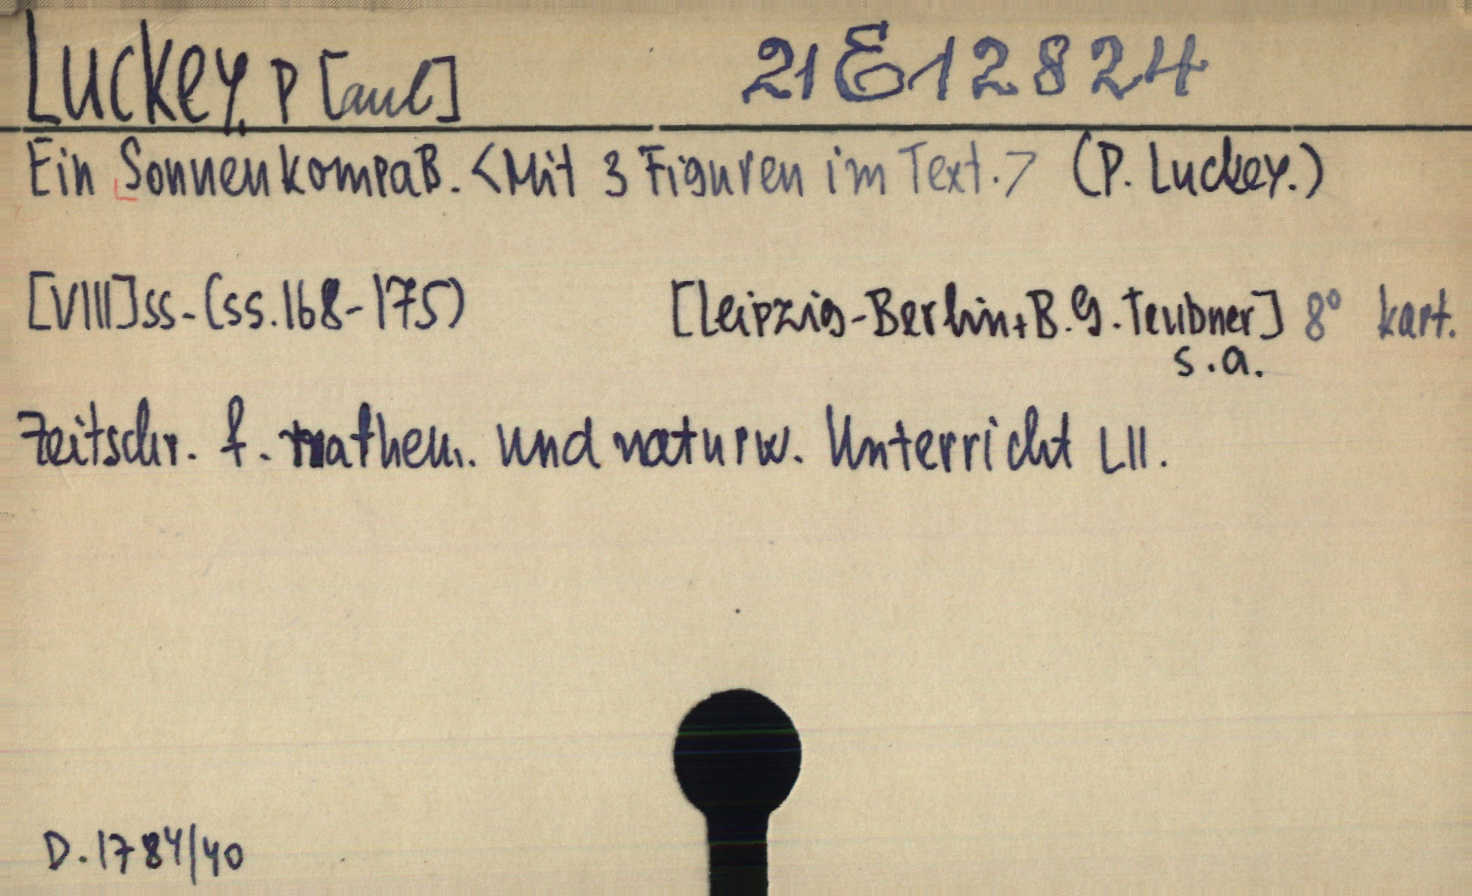 Luckey, P[aul] 21 E 12824
Ein Sonnenkompaß. <Mit 3 Figuren im Text.> (P. Luckey.)
[VIII]ss-(ss.168-175) [Leipzig-Berlin, B.G. Teubner] 8° kart.
s.a.
Zeitschr. f. mathem. und naturw. Unterricht LII.
D. 1784/40